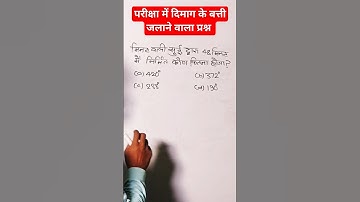 परीक्षा में दिमाग के बत्ती
जलाने वाला प्रश्न
मिनट वाली सुई द्वारा 48 मिनट
में निर्मित कोण कितना होगा?
(a) 420° (b) 372°
(c) 288° (d)